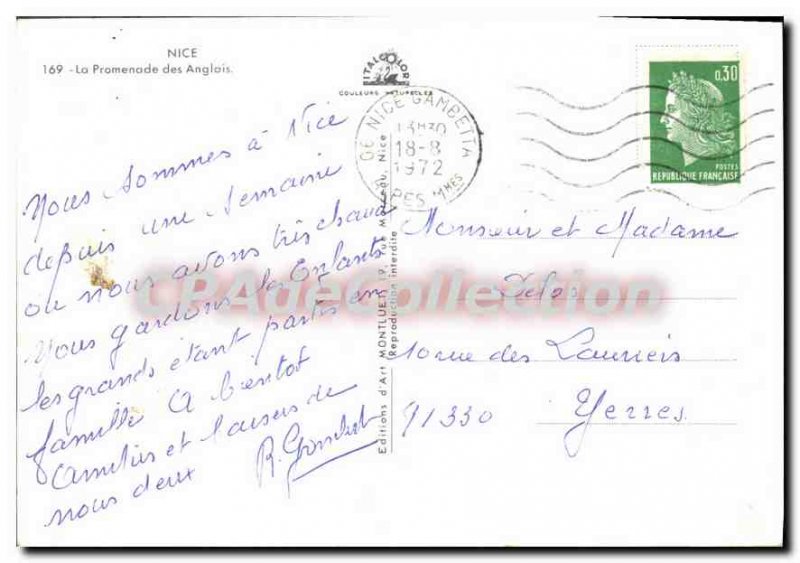 NICE
169 - La Promenade des Anglais.
ITALCOLOR
COULEURS NATURELLES
06 NICE GAMBETTA
13H30
18-8
1972
ALPES MMES
0,30
POSTES
REPUBLIQUE FRANÇAISE
Nous sommes à Nice
depuis une semaine
ou nous avons très chaud
Nous gardons les Enfants
les grands étant partis en
famille A bientot
Amitiés et baisers de
nous deux
R.
Editions d'Art MONTLUET, 19, rue Nice
Reproduction interdite
Monsieur et Madame
10 rue des Lauriers
91330 Yerres
CPAdeCollection